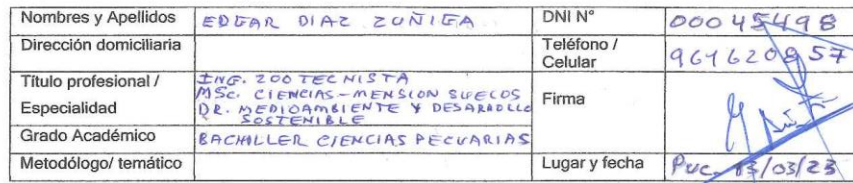 Nombres y Apellidos EDGAR DIAZ ZUÑIGA DNI N° 00045498
Dirección domiciliaria Teléfono / Celular 961620957
Título profesional / Especialidad ING. ZOOTECNISTA
MSc. CIENCIAS - MENSION SUELOS
DR. MEDIOAMBIENTE Y DESARROLLO
SOSTENIBLE
Firma
Grado Académico BACHILLER CIENCIAS PECUARIAS
Metodólogo/ temático Lugar y fecha Puc. 13/03/23